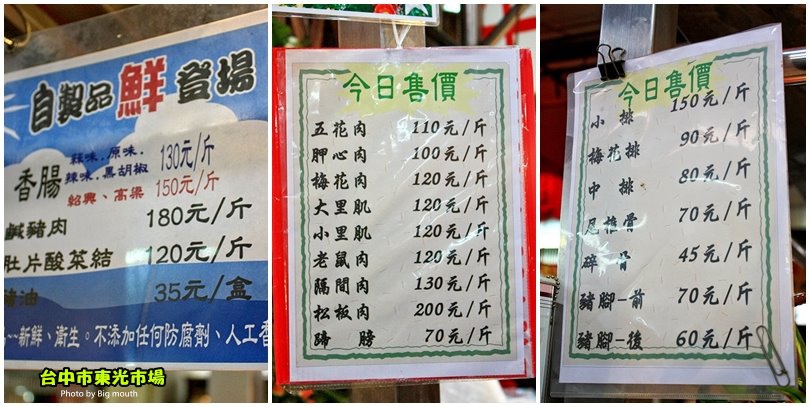 自製品鮮登場
蒜味．原味．
辣味．黑胡椒
130元/斤
香腸
紹興、高梁 150元/斤
鹹豬肉 180元/斤
肚片酸菜結 120元/斤
豬油 35元/盒
~~新鮮、衛生。不添加任何防腐劑、人工香
台中市東光市場
Photo by Big mouth
今日售價
五花肉 110元/斤
胛心肉 100元/斤
梅花肉 120元/斤
大里肌 120元/斤
小里肌 120元/斤
老鼠肉 120元/斤
隔間肉 130元/斤
松板肉 200元/斤
蹄膀 70元/斤
今日售價
小排 150元/斤
梅花排 90元/斤
中排 80元/斤
尾椎骨 70元/斤
碎骨 45元/斤
豬腳-前 70元/斤
豬腳-後 60元/斤